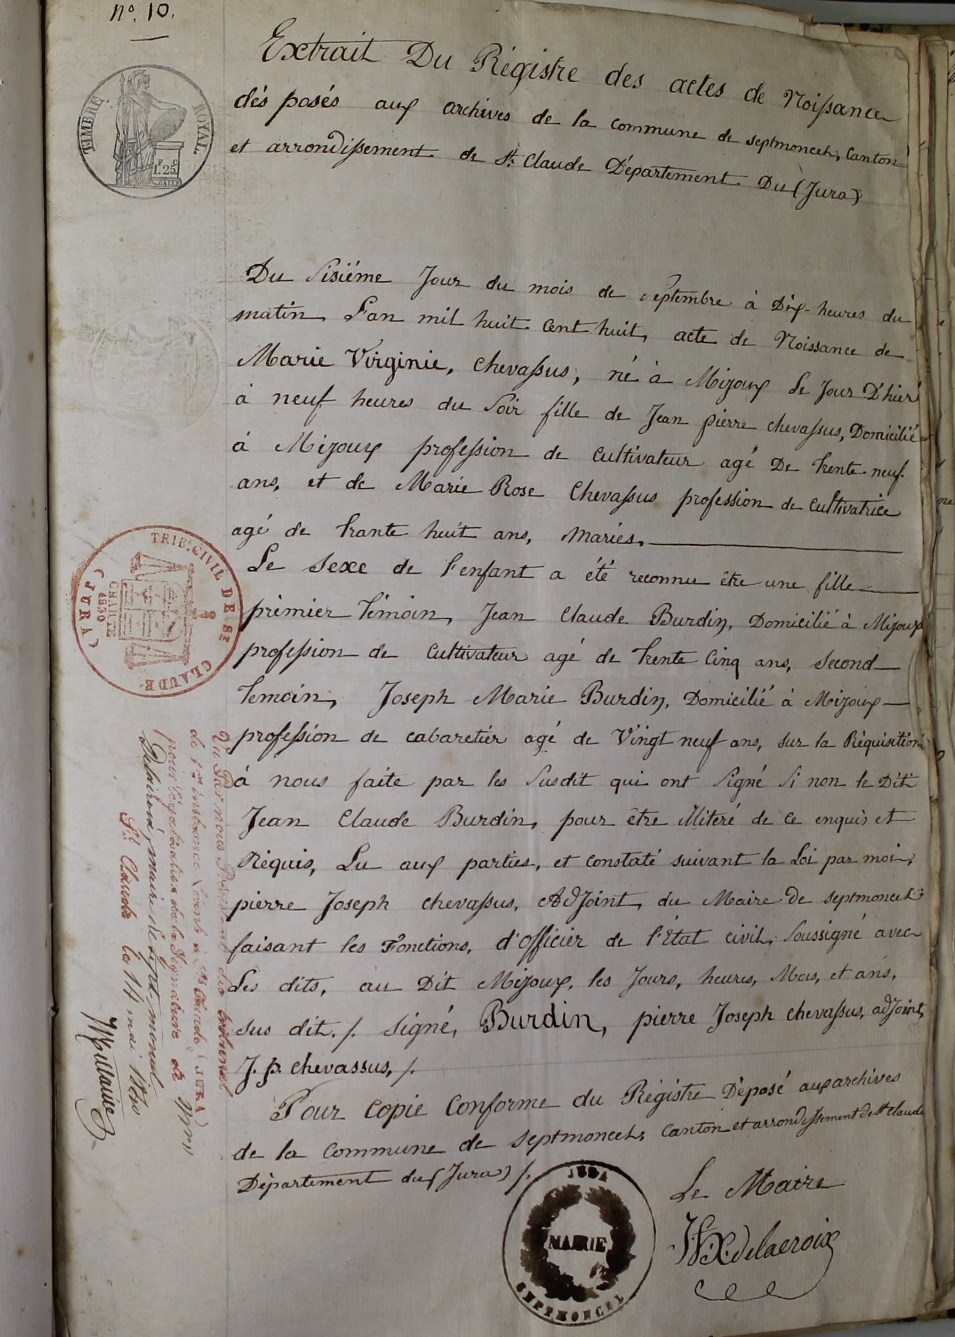 n°. 10.
TIMBRE ROYAL.
F. C.
1.25
Extrait Du Régistre des actes de Noissance
dés posés aux archives de la commune de septmoncel, Canton
et arrondissement de St. Claude Département Du (Jura)
Du Sisiéme Jour du mois de Septembre à Dix-heures du
matin, L'an mil huit cent huit, acte de Noissance de
Marie Virginie, Chevassus, né à Mijoux le Jour D'hier
à neuf heures du Soir fille de Jean pierre Chevassus, Domicilié
à Mijoux profession de Cultivateur agé De trente-neuf
ans, et de Marie Rose Chevassus profession de Cultivatrice
agé de trante huit ans, mariés.
Le Sexe de l'enfant a été reconnu être une fille
prémier témoin, Jean Claude Burdin, Domicilié à Mijoux
profession de Cultivateur agé de trente Cinq ans, Second
temoin, Joseph Marie Burdin, Domicilié à Mijoux
profession de cabaretier agé de Vingt neuf ans, sur la Réquisition
à nous faite par les Susdit qui ont Signé Si non le Dit
Jean Claude Burdin, pour être illitéré de ce enquis et
Réquis, Lu aux parties, et constaté suivant la Loi par moi,
pierre Joseph Chevassus, Adjoint, du Maire De septmoncel
faisant les Fonctions, d'officier de l'État civil, Soussigné avec
Les dits, au Dit Mijoux, les Jours, heures, Mois, et ans,
sus dit./. Signé, Burdin, pierre Joseph Chevassus, adjoint,
J. p. Chevassus, /.
Pour Copie Conforme du Régistre Déposé aux archives
de la Commune de Septmoncel, Canton et arrondissement de St Claude
Département du (Jura) /.
Le Maire
Delacroix
JURA
MAIRIE
SEPTMONCEL
TRIB. CIVIL DE ST. CLAUDE
(JURA)
CHARTE
1830
Vu Par nous Président du tribunal
de 1re instance séant à St Claude (JURA)
pour légalisation de la Signature de Mr
maire de Septmoncel
St. Claude le 14 mai 1840